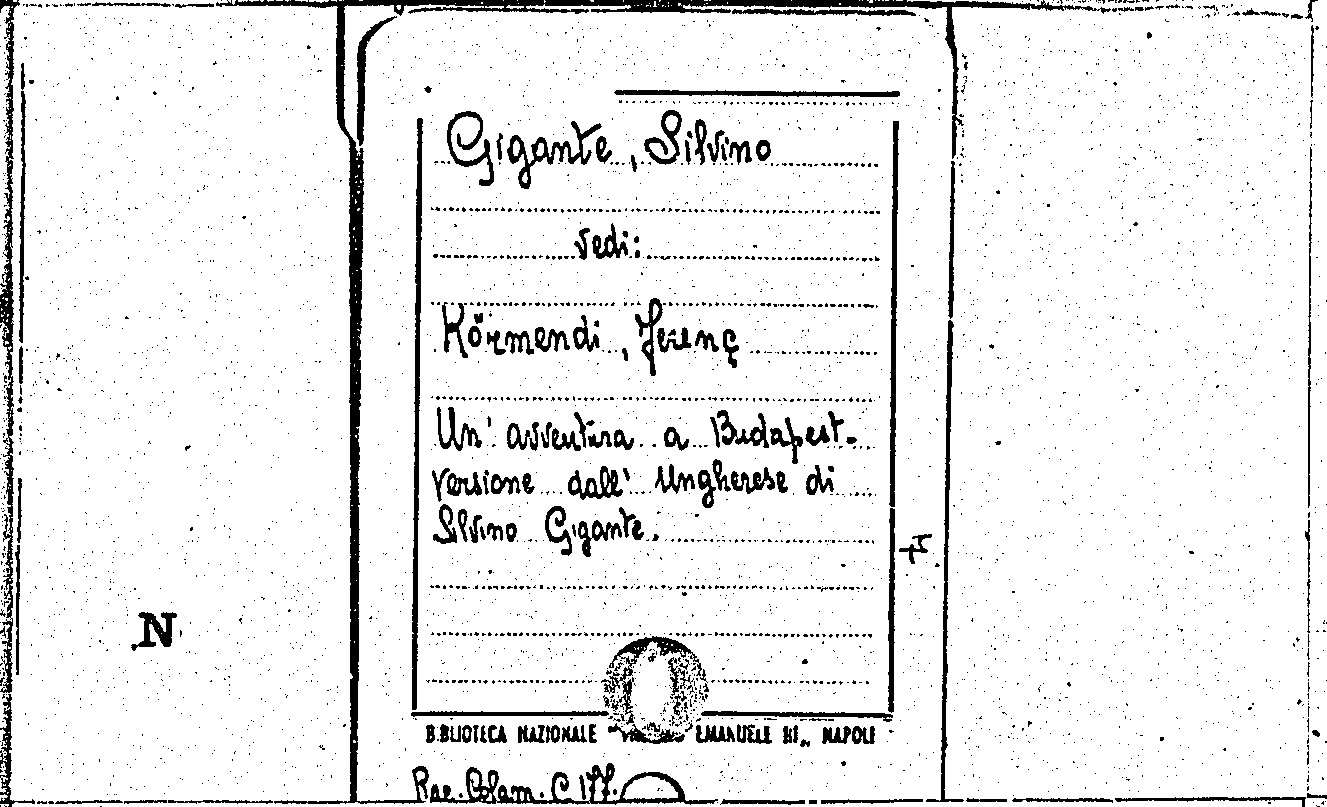 Gigante, Silvino
vedi:
Körmendi, Ferenç
Un' avventura a Budapest.
versione dall' Ungherese di
Silvino Gigante.
N
BIBLIOTECA NAZIONALE EMANUELE III„ NAPOLI